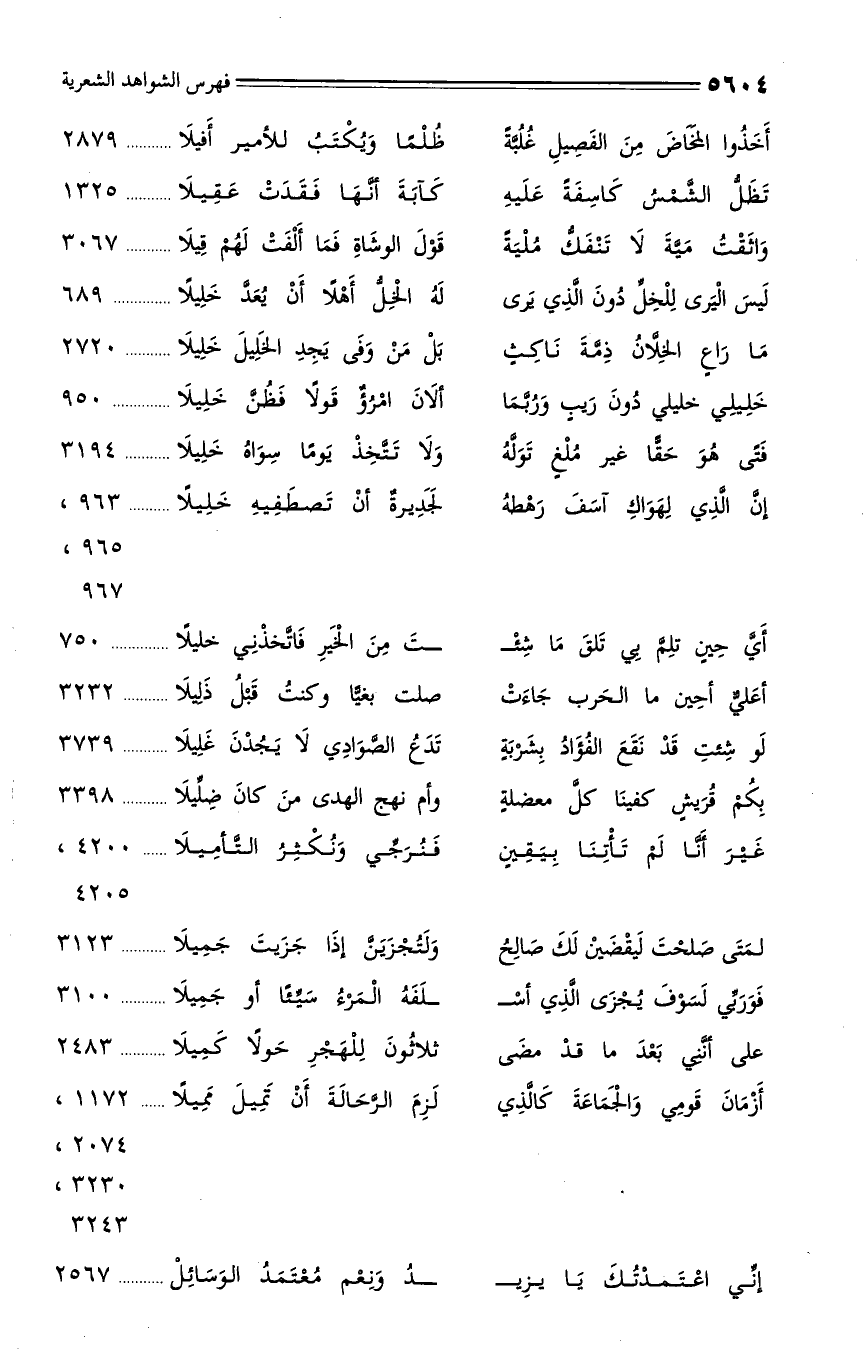 ٥٦٠٤ فهرس الشواهد الشعرية
أَخَذُوا المَخَاضَ مِنَ الفَصِيلِ غُلُبَّةً ظُلْمًا وَيُكْتَبُ للأمير أَفيلَا ........... ٢٨٧٩
تَظَلُّ الشَّمْسُ كَاسِفَةً عَلَيهِ كَآبَةَ أنَّهَا فَقَدَتْ عَقِيلَا ........... ١٣٢٥
وَاثَقْتُ مَيَّةَ لَا تَنْفَكُّ مُلْيَةً قَوْلَ الوشَاةِ فَمَا أَلْفَتْ لَهُمْ قِيلَا ........... ٣٠٦٧
لَيسَ الْيَرى لِلْخِلِّ دُونَ الَّذِي يَرى لَهُ الْخِلُّ أَهْلًا أَنْ يُعَدَّ خَلِيلًا .............. ٦٨٩
مَا رَاعِ الخِلَّانُ ذِمَّةَ نَاكِثٍ بَلْ مَنْ وَفَى يَجِدِ الخَلِيلَ خَلِيلًا ........... ٢٧٢٠
خَلِيلِي خليلي دُونَ رَيبٍ وَرُبَّمَا ألَانَ امْرُؤٌ قَولًا فَظُنَّ خَلِيلَا .............. ٩٥٠
فَتًى هُوَ حَقًّا غير مُلْغٍ تَوَلَّهُ وَلَا تَتَّخِذْ يَومًا سِوَاهُ خَلِيلَا ........... ٣١٩٤
إنَّ الَّذِي لِهَوَاكِ آسَفَ رَهْطهُ لَجَدِيرةٌ أنْ تَصطَفِيهِ خَلِيلًا .......... ٩٦٣ ،
٩٦٥ ،
٩٦٧
أَيَّ حِينٍ تلِمَّ بِي تَلقَ مَا شِئْـ ـتَ مِنَ الْخَيرِ فَاتَّخذْنِي خليلًا .............. ٧٥٠
أعَليٌّ أحِين ما الحَرب جَاءَتْ صلت بغيًّا وكنتُ قَبْلُ ذَلِيلَا ........... ٣٢٣٢
لَو شِئتِ قَدْ نَقَعَ الفُؤَادُ بِشَرْبَةٍ تَدَعُ الصَّوَادِي لَا يَجُدْنَ غَلِيلَا ........... ٣٧٣٩
بِكُمْ قُرَيشٍ كفينَا كلَّ معضلةٍ وأم نهج الهدى منَ كانَ ضِلِّيلَا ........... ٣٣٩٨
غَيْرَ أَنَّا لَمْ تَأْتِنَا بِيَقِينٍ فَنُرَجِّي وَنُكْثِرُ التَّأمِيلَا ...... ٤٢٠٠ ،
٤٢٠٥
لمَتَى صَلحْتَ لَيقْضَيَنْ لَكَ صَالِحُ وَلَتُجْزَيَنَّ إذَا جَزَيتَ جَمِيلَا ........... ٣١٢٣
فَوَرَبِّي لَسَوْفَ يُجْزَى الَّذِي أسْـ ـلَفَهُ الْمَرْءُ سَيِّئًا أو جَمِيلَا ........... ٣١٠٠
على أنَّنِي بَعْدَ ما قدْ مضَى ثلاثُونَ لِلْهَجْرِ حَولًا كَمِيلَا ........... ٢٤٨٣
أَزْمَانَ قَومِي وَالْجَمَاعَةَ كَالَّذِي لَزِمَ الرَّحَالَةَ أَنْ تَمِيلَ مَمِيلًا ...... ١١٧٢ ،
٢٠٧٤ ،
٣٢٣٠ ،
٣٢٤٣
إنِّي اعْتَمَدْتُكَ يَا يزيـ ـدُ وَنِعْم مُعْتَمَدُ الوَسَائِلْ ........... ٢٥٦٧